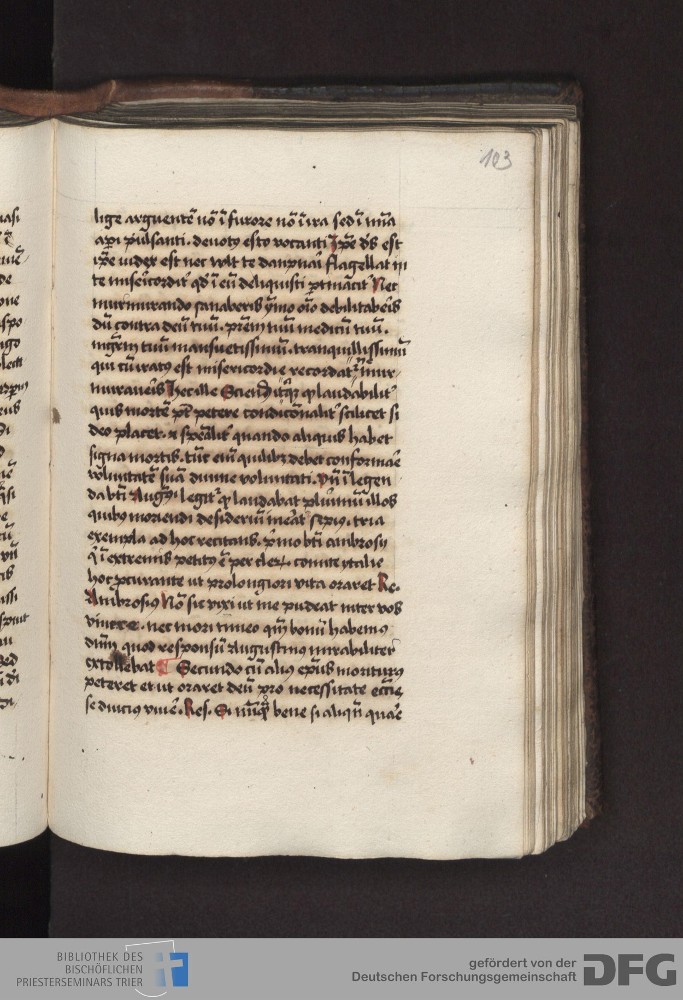 103
lige arguentē nō ī furore nō ī ira sed ī mīa
apī pulsanti. deuotꝰ esto vocanti Ip̄e d̄s est
ip̄e iudex est nec vult te dampnaī flagellat in
te misericordit̾ qd̾ ī eū deliquisti Nec
murmurando sanaberis ymo oīo debilitabēis
Dū contra deū tuū. prēm tuū medicū tuū.
mgrm̄ tuū mansuetissimū. tranquillissimū
qui cū iratꝰ est misericordie recordat᷑ mur-
muraueīs Hec ille Sciend̄ ꝙ laudabilit̾
quis mortē pt̄ petere condicōnalit̾ scilicet si
deo placet. ⁊ spēalit̾ quando aliquis habet
signa mortis. tūc enī quilibꝫ debet conformāe
volūtatē suā diuine voluntati. Vn̄ ī legen
da bt̄i Augꝰⁱ legit᷑ ꝙ laudabat plurimū illos
quibꝰ moriendi desideriū
exempla ad hoc recitans. pͥmo bt̄i ambrosij
qͥ ī extremis petitꝰ ē per comite ytalie
hoc ꝓcurante ut prolongiori vita oraret Re.
Ambrosiꝰ Nō sic vixi ut me pudeat inter vos
viuere. nec mori timeo qm̄ bonū habemꝰ
dn̄m quod responsū Augustinus mirabiliter
extollebat ¶ Secundo cū aliꝰ ep̄us moriturꝰ
peteret et ut oraret deū pro necessitate eccīe
se diucius viuē. Res. Si nūqͣ bene si aliqn̄ quaē
BIBLIOTHEK DES
BISCHÖFLICHEN
PRIESTERSEMINARS TRIER
gefördert von der
Deutschen Forschungsgemeinschaft
DFG